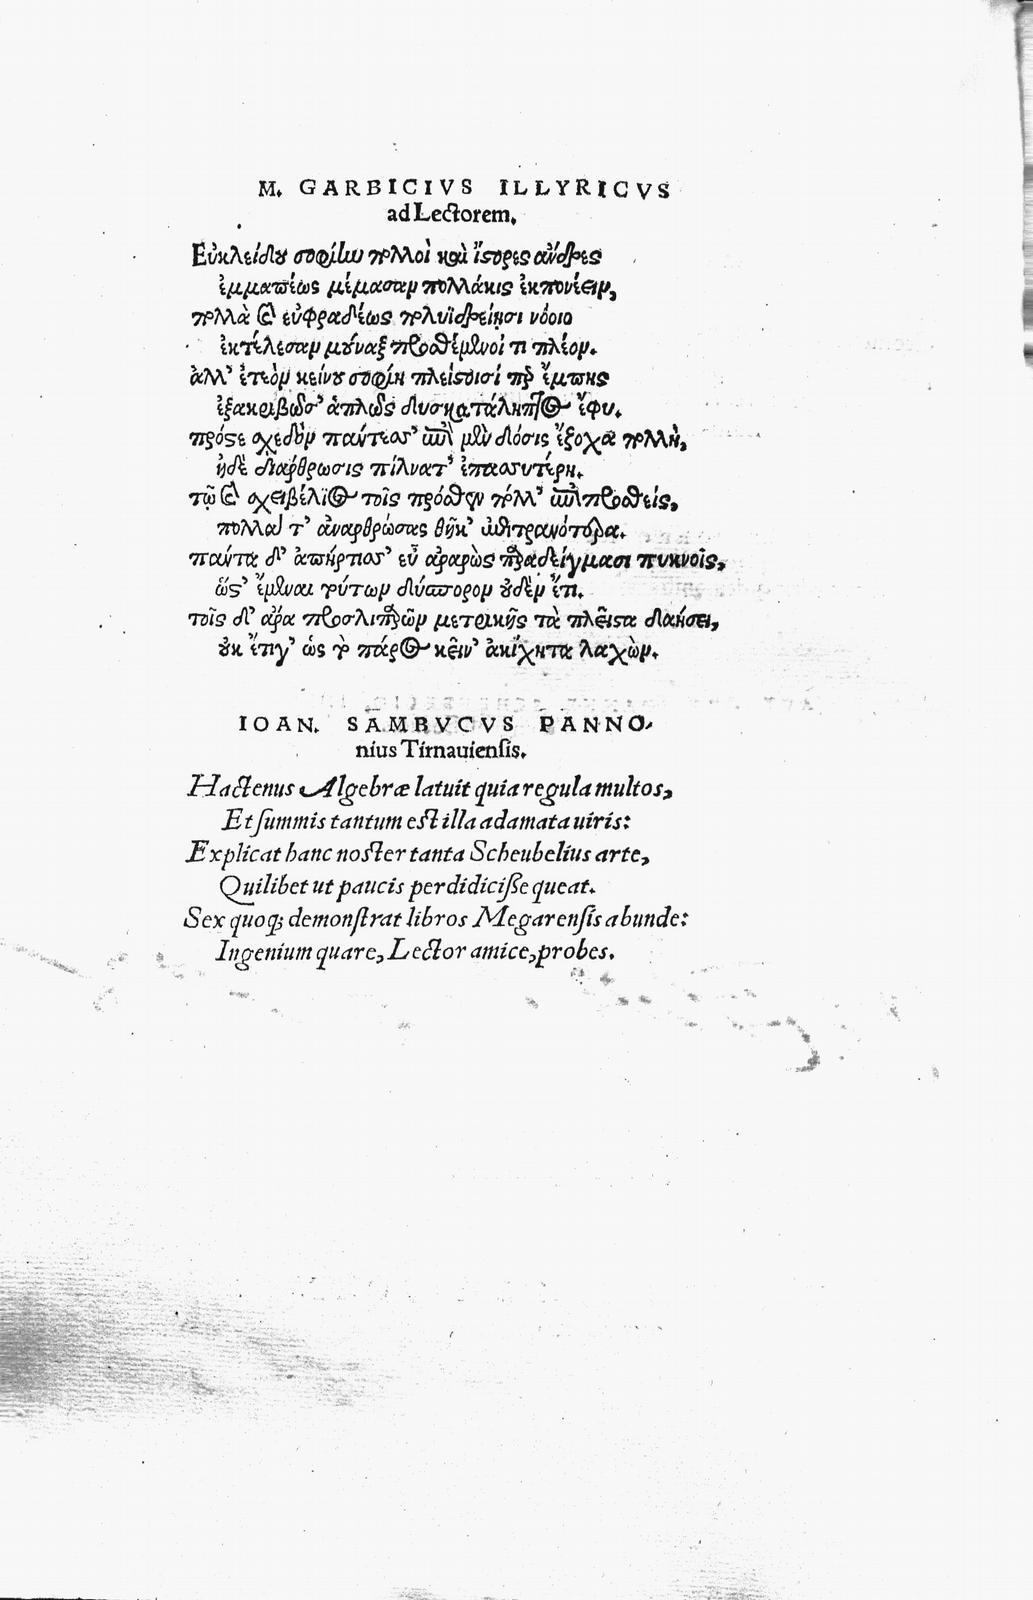 M. GARBICIVS ILLYRICVS
ad Lectorem.
Εὐκλείδου σοφίην πολλοὶ καὶ ἴστορες ἄνδρες
ἐμμαπέως μέμασαν πολλάκις ἐκπονέειν,
πολλὰ δ' εὐφραδέως πολυϊδρείῃσι νόοιο
ἐκτέλεσαν μούναξ προθέμενοί τι πλέον.
ἀλλ' ἐτεὸν κείνου σοφίη πλείστοισί περ ἔμπης
ἐξακριβῶσ' ἁπλῶς δυσκατάληπτος ἔφυ.
πρόσε σχεδὸν παντεσσ' ἐπὶ μὲν δόσις ἔξοχα πολλὴ,
ἠδὲ διάρθρωσις πίλνατ' ἐπασσυτέρη.
τῷ δ' σχειβέλιος τοῖς πρόσθεν πόλλ' ἐπιπροσθείς,
πολλά τ' ἀναρθρώσας θῆκ'
πάντα δ' ἀπήρτισσ' εὖ ἀραρὼς παραδείγμασι πυκνοῖς,
ὥς' ἔμεναι τούτων δύσπορον οὐδὲν ἔτι.
τοῖς δ' ἄρα προσλιπαρῶν μετρικῆς τὰ πλεῖστα διανήσει,
οὐκ ἔτι γ' ὡς τὸ πάρος κεῖν' ἀκίχητα λαχὼν.
IOAN. SAMBVCVS PANNO-
nius Tirnauiensis.
Hactenus Algebræ latuit quia regula multos,
Et summis tantum est illa adamata uiris:
Explicat hanc noster tanta Scheubelius arte,
Quilibet ut paucis perdidicisse queat.
Sex quoq; demonstrat libros Megarensis abunde:
Ingenium quare, Lector amice, probes.